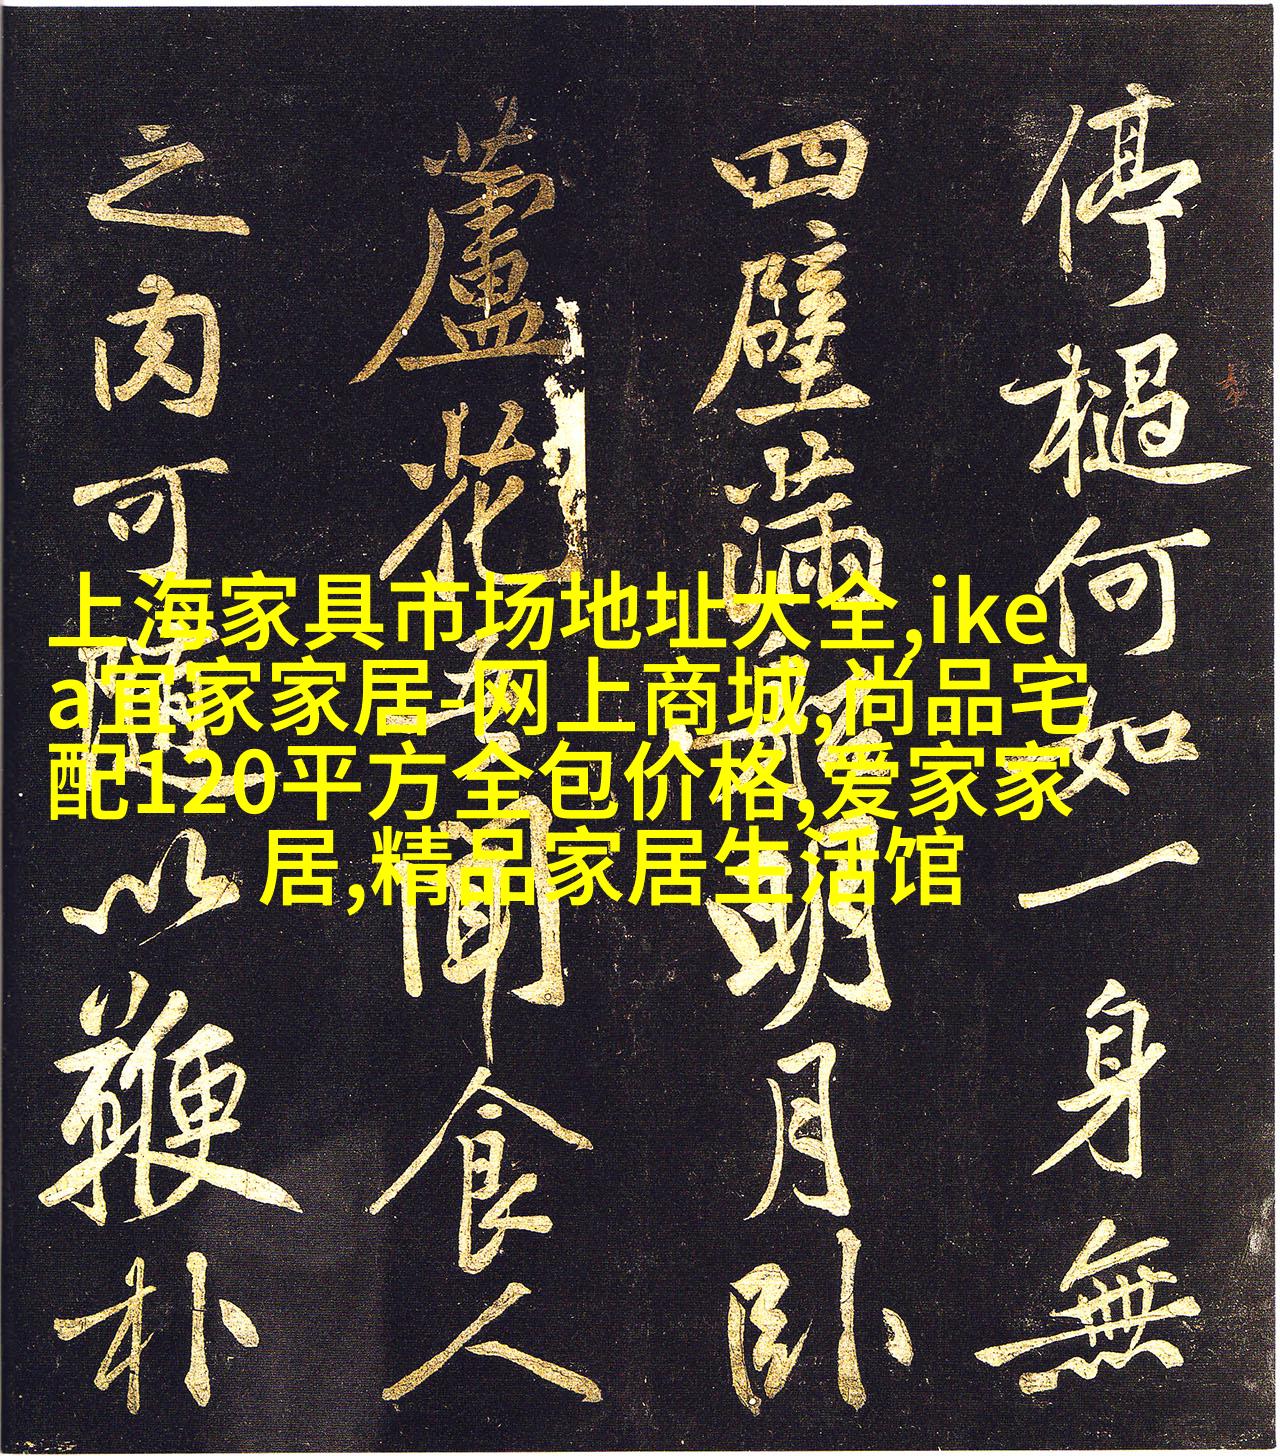 停檛何如一身無
四壁滿船明月卧
蘆花吾聞食人
之肉可隨以鞭朴
上海家具市场地址大全,ike
a宜家家居-网上商城,尚品宅
配120平方全包价格,爱家家
居,精品家居生活馆